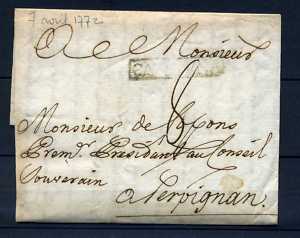 7 avril 1772
A Monsieur
Monsieur de
Premr. President au Conseil
Souverain
a Perpignan.